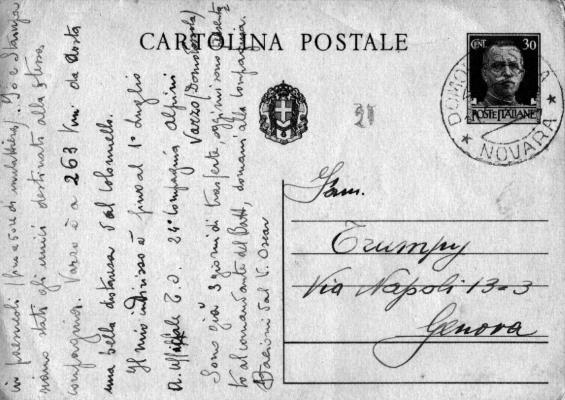 CARTOLINA POSTALE
CENT. 30
POSTE ITALIANE
DOMODOSSOLA
* NOVARA *
24
Fam.
Trumpy
Via Napoli 13-3
Genova
in paesucoli Io e Stampa
siamo stati gli unici destinati alla stessa
compagnia. Varzo è a 263 Km da Aosta
una bella distanza dal colonnello.
Il mio indirizzo è fino al 1° luglio
A. Uffiziale C.O. 24° Compagnia Alpini
Varzo (Domodossola)
Sono già 3 giorni di trasferte, oggi mi sono presenta
to al comandante del Batt., domani alla compagnia.
Bacioni dal V. Oscar